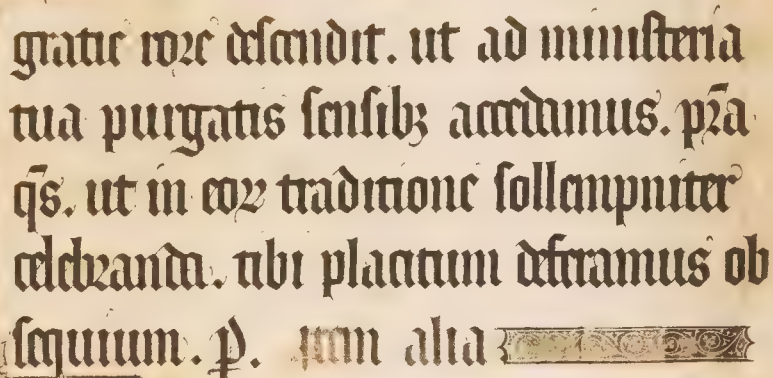 gratie rore descendit. ut ad ministeria
tua purgatis sensibꝫ accedamus. p̄ra
q̄s. ut in eoꝝ traditione sollempniter
celebranda. tibi placitum deferamus ob
sequium. p. item alia